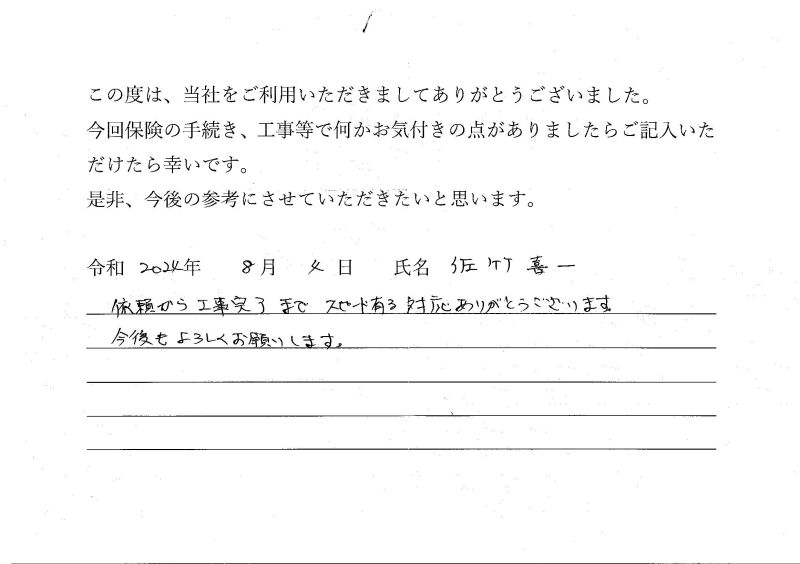 この度は、当社をご利用いただきましてありがとうございました。
今回保険の手続き、工事等で何かお気付きの点がありましたらご記入いた
だけたら幸いです。
是非、今後の参考にさせていただきたいと思います。
令和 2024年 8月 4日 氏名 佐竹喜一
依頼から工事完了まで スピード有る対応ありがとうございます
今後もよろしくお願いします。